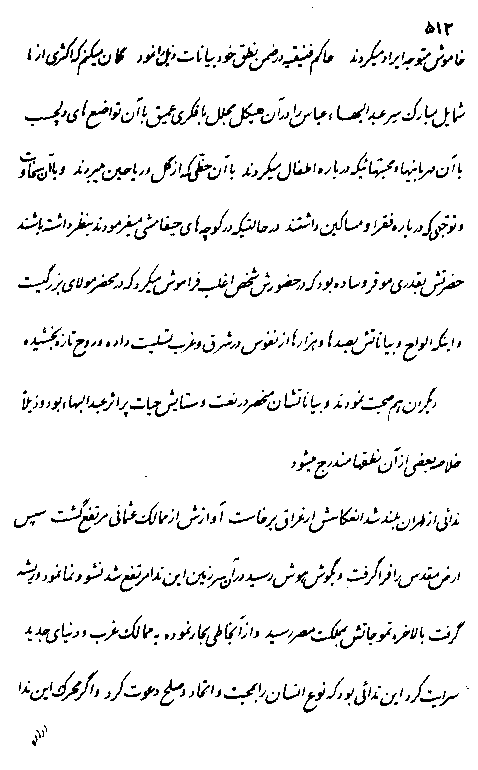 ۵۱۲
خاموش متوجه ایراد میکردند حاکم فنیقیه در ضمن نطق خود بیانات ذیل را نمود گمان میکنم که اکثری از ما
شمایل مبارک سر عبدالبهاء عباس را در آن هیکل مجلل با فکری عمیق با آن تواضع های دلچسب
با آن مهربانیها و محبتهائیکه در باره اطفال میکردند با آن حظی که از گل و ریاحین میبردند و با آن سخاوت
و توجهی که در باره فقرا و مساکین داشتند در حالتیکه در کوچه های حیفا مشی میفرمودند بنظر داشته باشند
حضرتش بقدری موقر و ساده بود که در حضورش شخص اغلب فراموش میکرد که در محضر مولای بزرگیست
و اینکه الواح و بیاناتش بصدها و هزارها از نفوس در شرق و غرب تسلیت داده و روح تازه بخشیده
دیگران هم صحبت نمودند و بیاناتشان منحصر در نعت و ستایش حیات پر اثر عبدالبهاء بود و ذیلاً
خلاصه بعضی از آن نطقها مندرج میشود
ندائی از طهران بلند شد انعکاسش از عراق برخاست آوازش از ممالک عثمانی مرتفع گشت سپس
ارض مقدس را فرا گرفت و بگوش هوش رسید در آن سرزمین این ندا مرتفع شد نشو و نما نمود و ریشه
گرفت بالاخره تموجاتش بمملکت مصر رسید و از آنجا طی بحار نموده به ممالک غرب و دنیای جدید
سرایت کرد این ندائی بود که نوع انسان را بمحبت و اتحاد و صلح دعوت کرد و اگر محرک این ندا